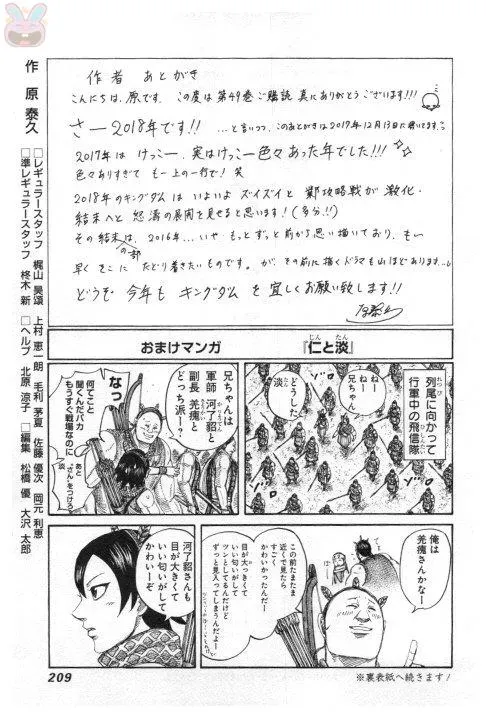 作者 あとがき
こんにちは、原です。この度は第49巻ご購読真にありがとうございます!!!
さー2018年です!! …と言いつつ、このあとがきは2017年12月13日に書いてます。
2017年は けっこー、実はけっこー色々あった年でした!!!
色々ありすぎて も一上の一行で! 笑
2018年のキングダムは いよいよ ズイズイと 鄴攻略戦が 激化、
結末へと 怒濤の展開を見せると思います!(多分!!)
その結末は、2016年…いや、もっとずっと前から思い描いており、もー
早くそこに たどり着きたいものです。が、その前に描くドラマも山ほどあります…
の部
どうぞ 今年も キングダムを 宜しくお願い致します!!
作 原 泰久
□レギュラースタッフ 梶山 昊頌 上村 恵一朗 毛利 茅夏 佐藤 優次 岡元 利恵
□準レギュラースタッフ 柊木 新 □ヘルプ 北原 涼子 □編集 松橋 優 大沢 太郎
おまけマンガ 『仁と淡』
じん たん
列尾に向かって
れつび
行軍中の飛信隊
ねー
ねー
兄ちゃん
どうした
淡
兄ちゃんは
軍師 河了貂と
副長 羌瘣と
どっち派ー?
なっ
何てこと
聞くんだバカ
もうすぐ戦場なのに
あと
“さん”をつけろ
淡
俺は
羌瘣さんかなー
この前たまたま
近くで見たら
すごく
かわいかったんだー
目が大っきくて
いい匂いがして
ツンとしてるんだけど
ずっと見入ってしまうんだよー
河了貂さんも
目が大きくて
いい匂いがして
かわいーぞ
209
※裏表紙へ続きます!